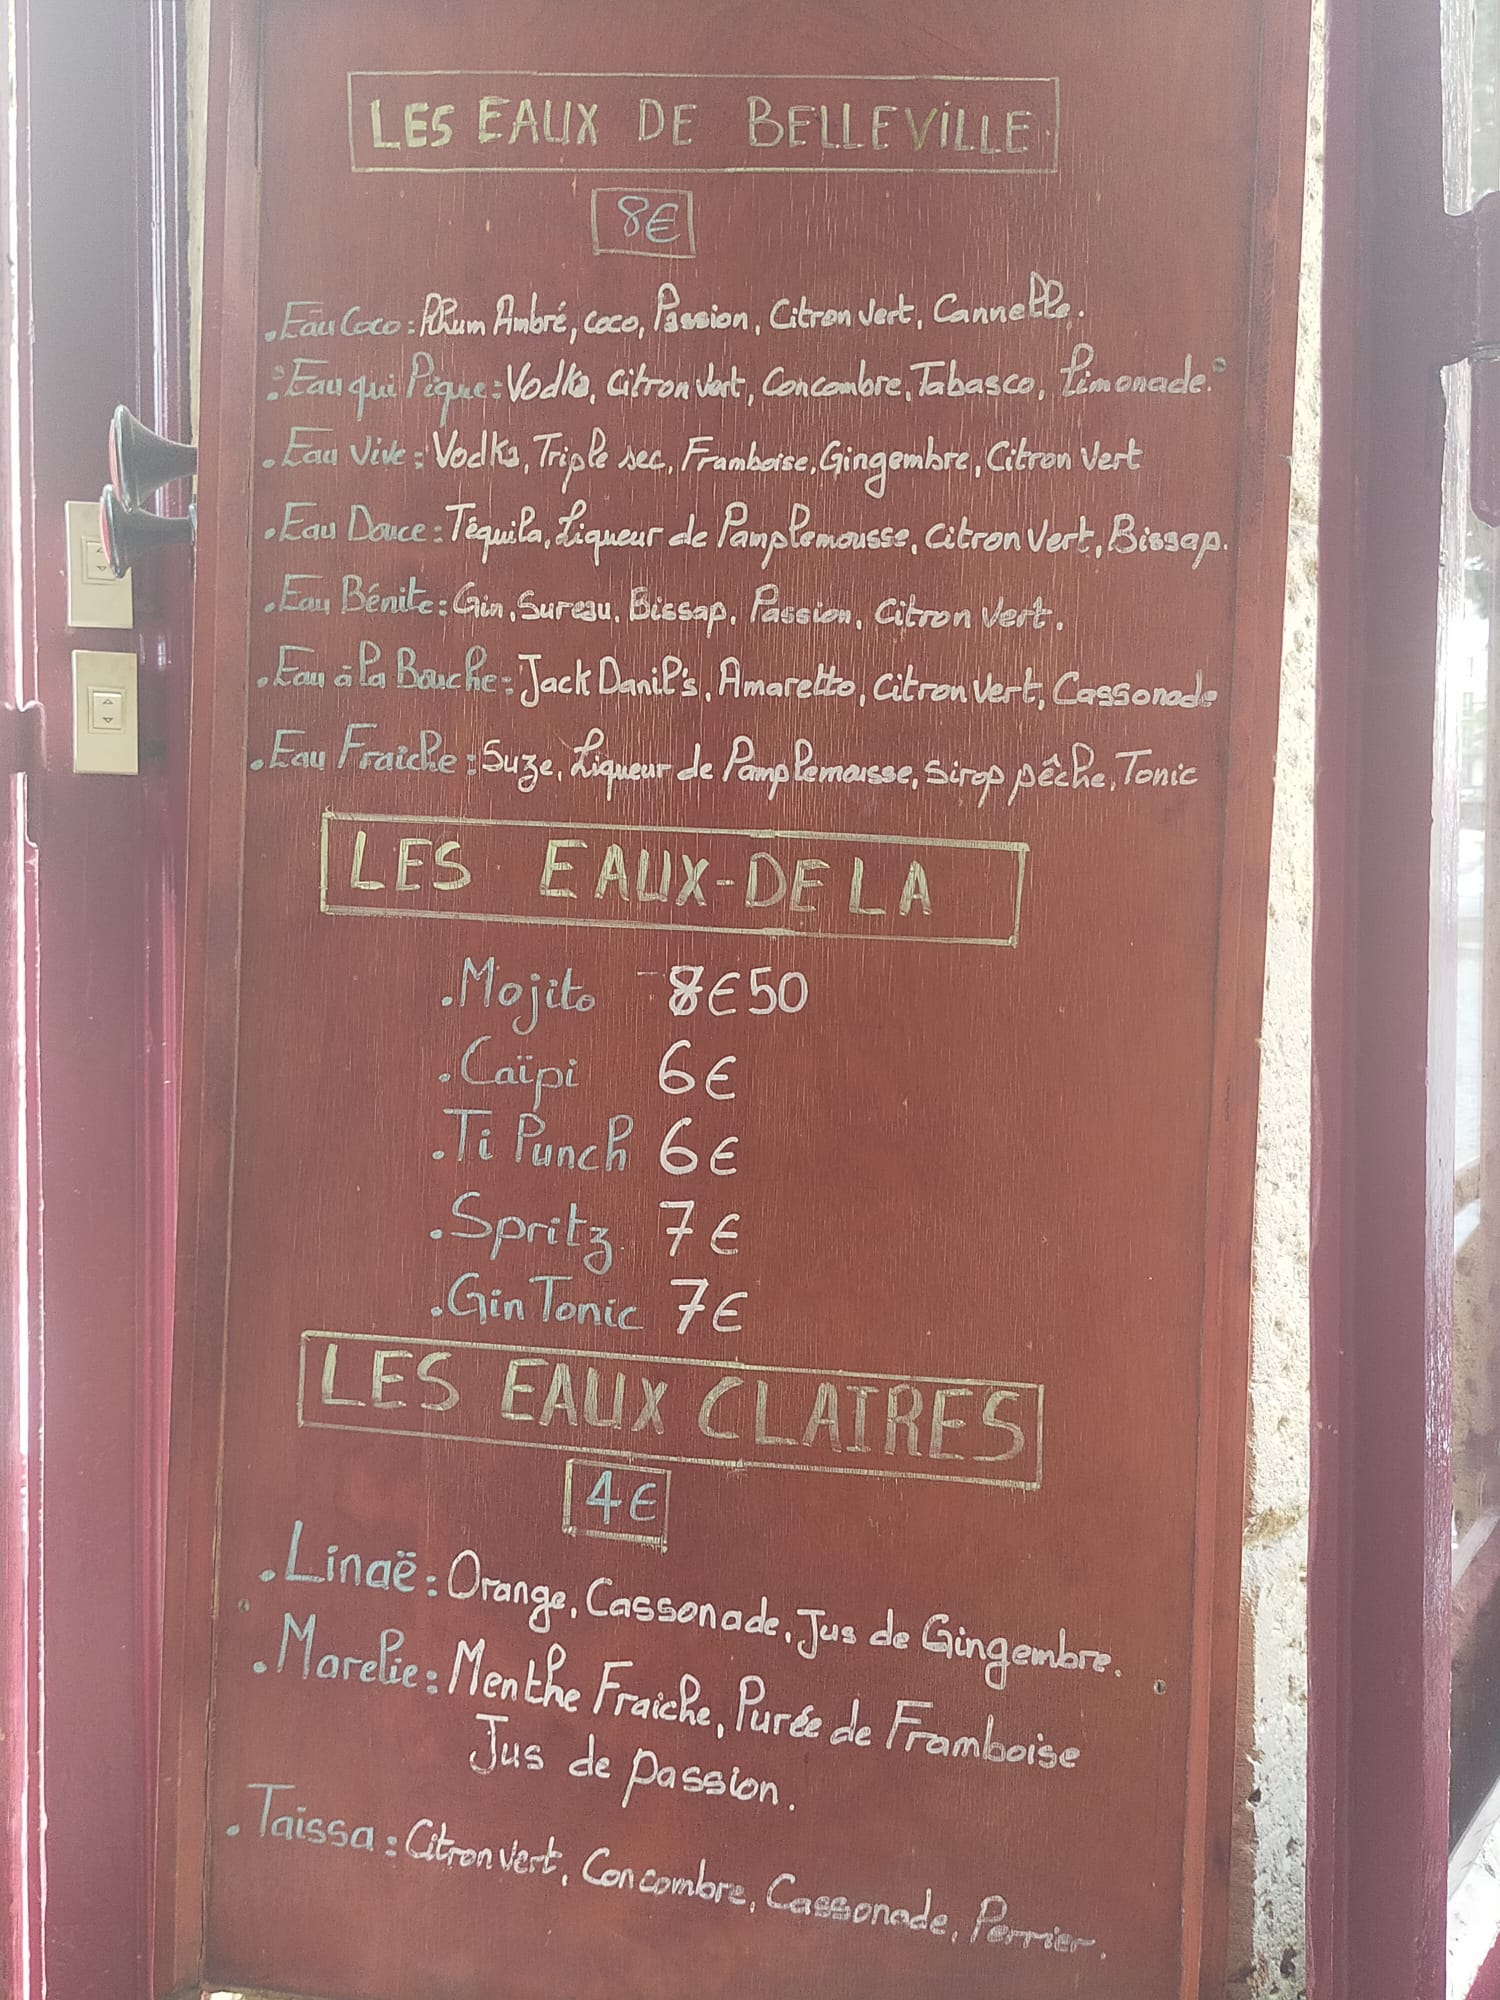 LES EAUX DE BELLEVILLE
8€
. Eau Coco : Rhum Ambré, coco, Passion, Citron Vert, Cannelle.
. Eau qui Pique : Vodka, Citron Vert, Concombre, Tabasco, Limonade.
. Eau Vive : Vodka, Triple sec, Framboise, Gingembre, Citron Vert
. Eau Douce : Téquila, Liqueur de Pamplemousse, Citron Vert, Bissap.
. Eau Bénite : Gin, Sureau, Bissap, Passion, Citron Vert.
. Eau à la Bouche : Jack Danil's, Amaretto, Citron Vert, Cassonade
. Eau Fraîche : Suze, Liqueur de Pamplemousse, Sirop pêche, Tonic
LES EAUX-DELA
. Mojito 8€50
. Caïpi 6€
. Ti Punch 6€
. Spritz 7€
. Gin Tonic 7€
LES EAUX CLAIRES
4€
. Linaë : Orange, Cassonade, Jus de Gingembre.
. Marelie : Menthe Fraiche, Purée de Framboise
Jus de passion.
. Taissa : Citron vert, Concombre, Cassonade, Perrier.